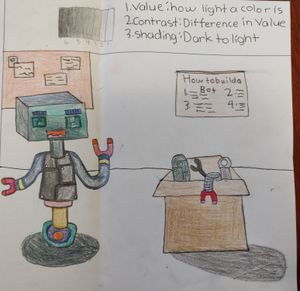 1. Value: how light a color is
2. Contrast: Difference in Value
3. Shading: Dark to light
How to build a
Bot
1. 2.
3. 4.